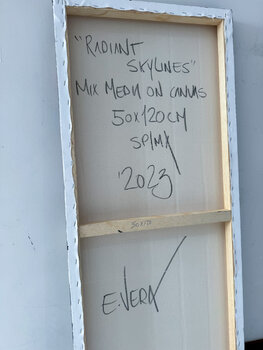 "RADIANT
SKYLINES"
MIX MEDIA ON CANVAS
50X120CM
SP/MX
'2023
50X120
E.VERA